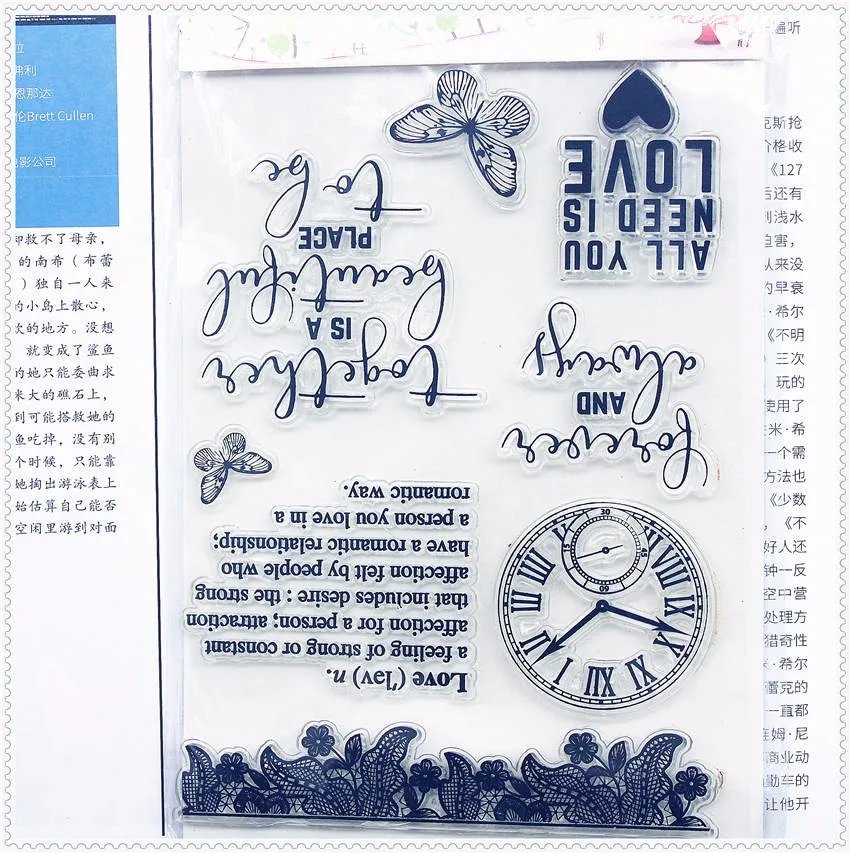 拉
弗利
恩那达
伦Brett Cullen
电影公司
却救不了母亲，
的南希（布蕾
）独自一人来
的小岛上散心，
次的地方。没想
就变成了鲨鱼
的她只能委曲求
米大的礁石上，
到可能搭救她的
鱼吃掉，没有别
个时候，只能靠
她掏出游泳表上
始估算自己能否
空闲里游到对面
ALL YOU
NEED IS
LOVE
together
IS A
beautiful
PLACE
to be
forever
AND
always
Love ('lev) n.
a feeling of strong or constant
affection for a person; attraction
that includes desire : the strong
affection felt by people who
have a romantic relationship;
a person you love in a
romantic way.
30
15
45
60
I
II
III
IIII
V
VIII
IX
X
XI
XII
遍听
克斯抢
价格收
《127
后还有
到浅水
迫害，
从来没
的早衰
·希尔
《不明
）三次
玩的
使用了
米·希
一个需
方法也
《少数
，《不
好人还
钟一反
空中营
处理方
猎奇性
米·希尔
蕾克的
一直都
连姆·尼
商业动
勤车的
让他开